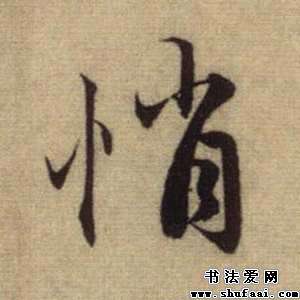 悄
书法爱网
www.shufaai.com